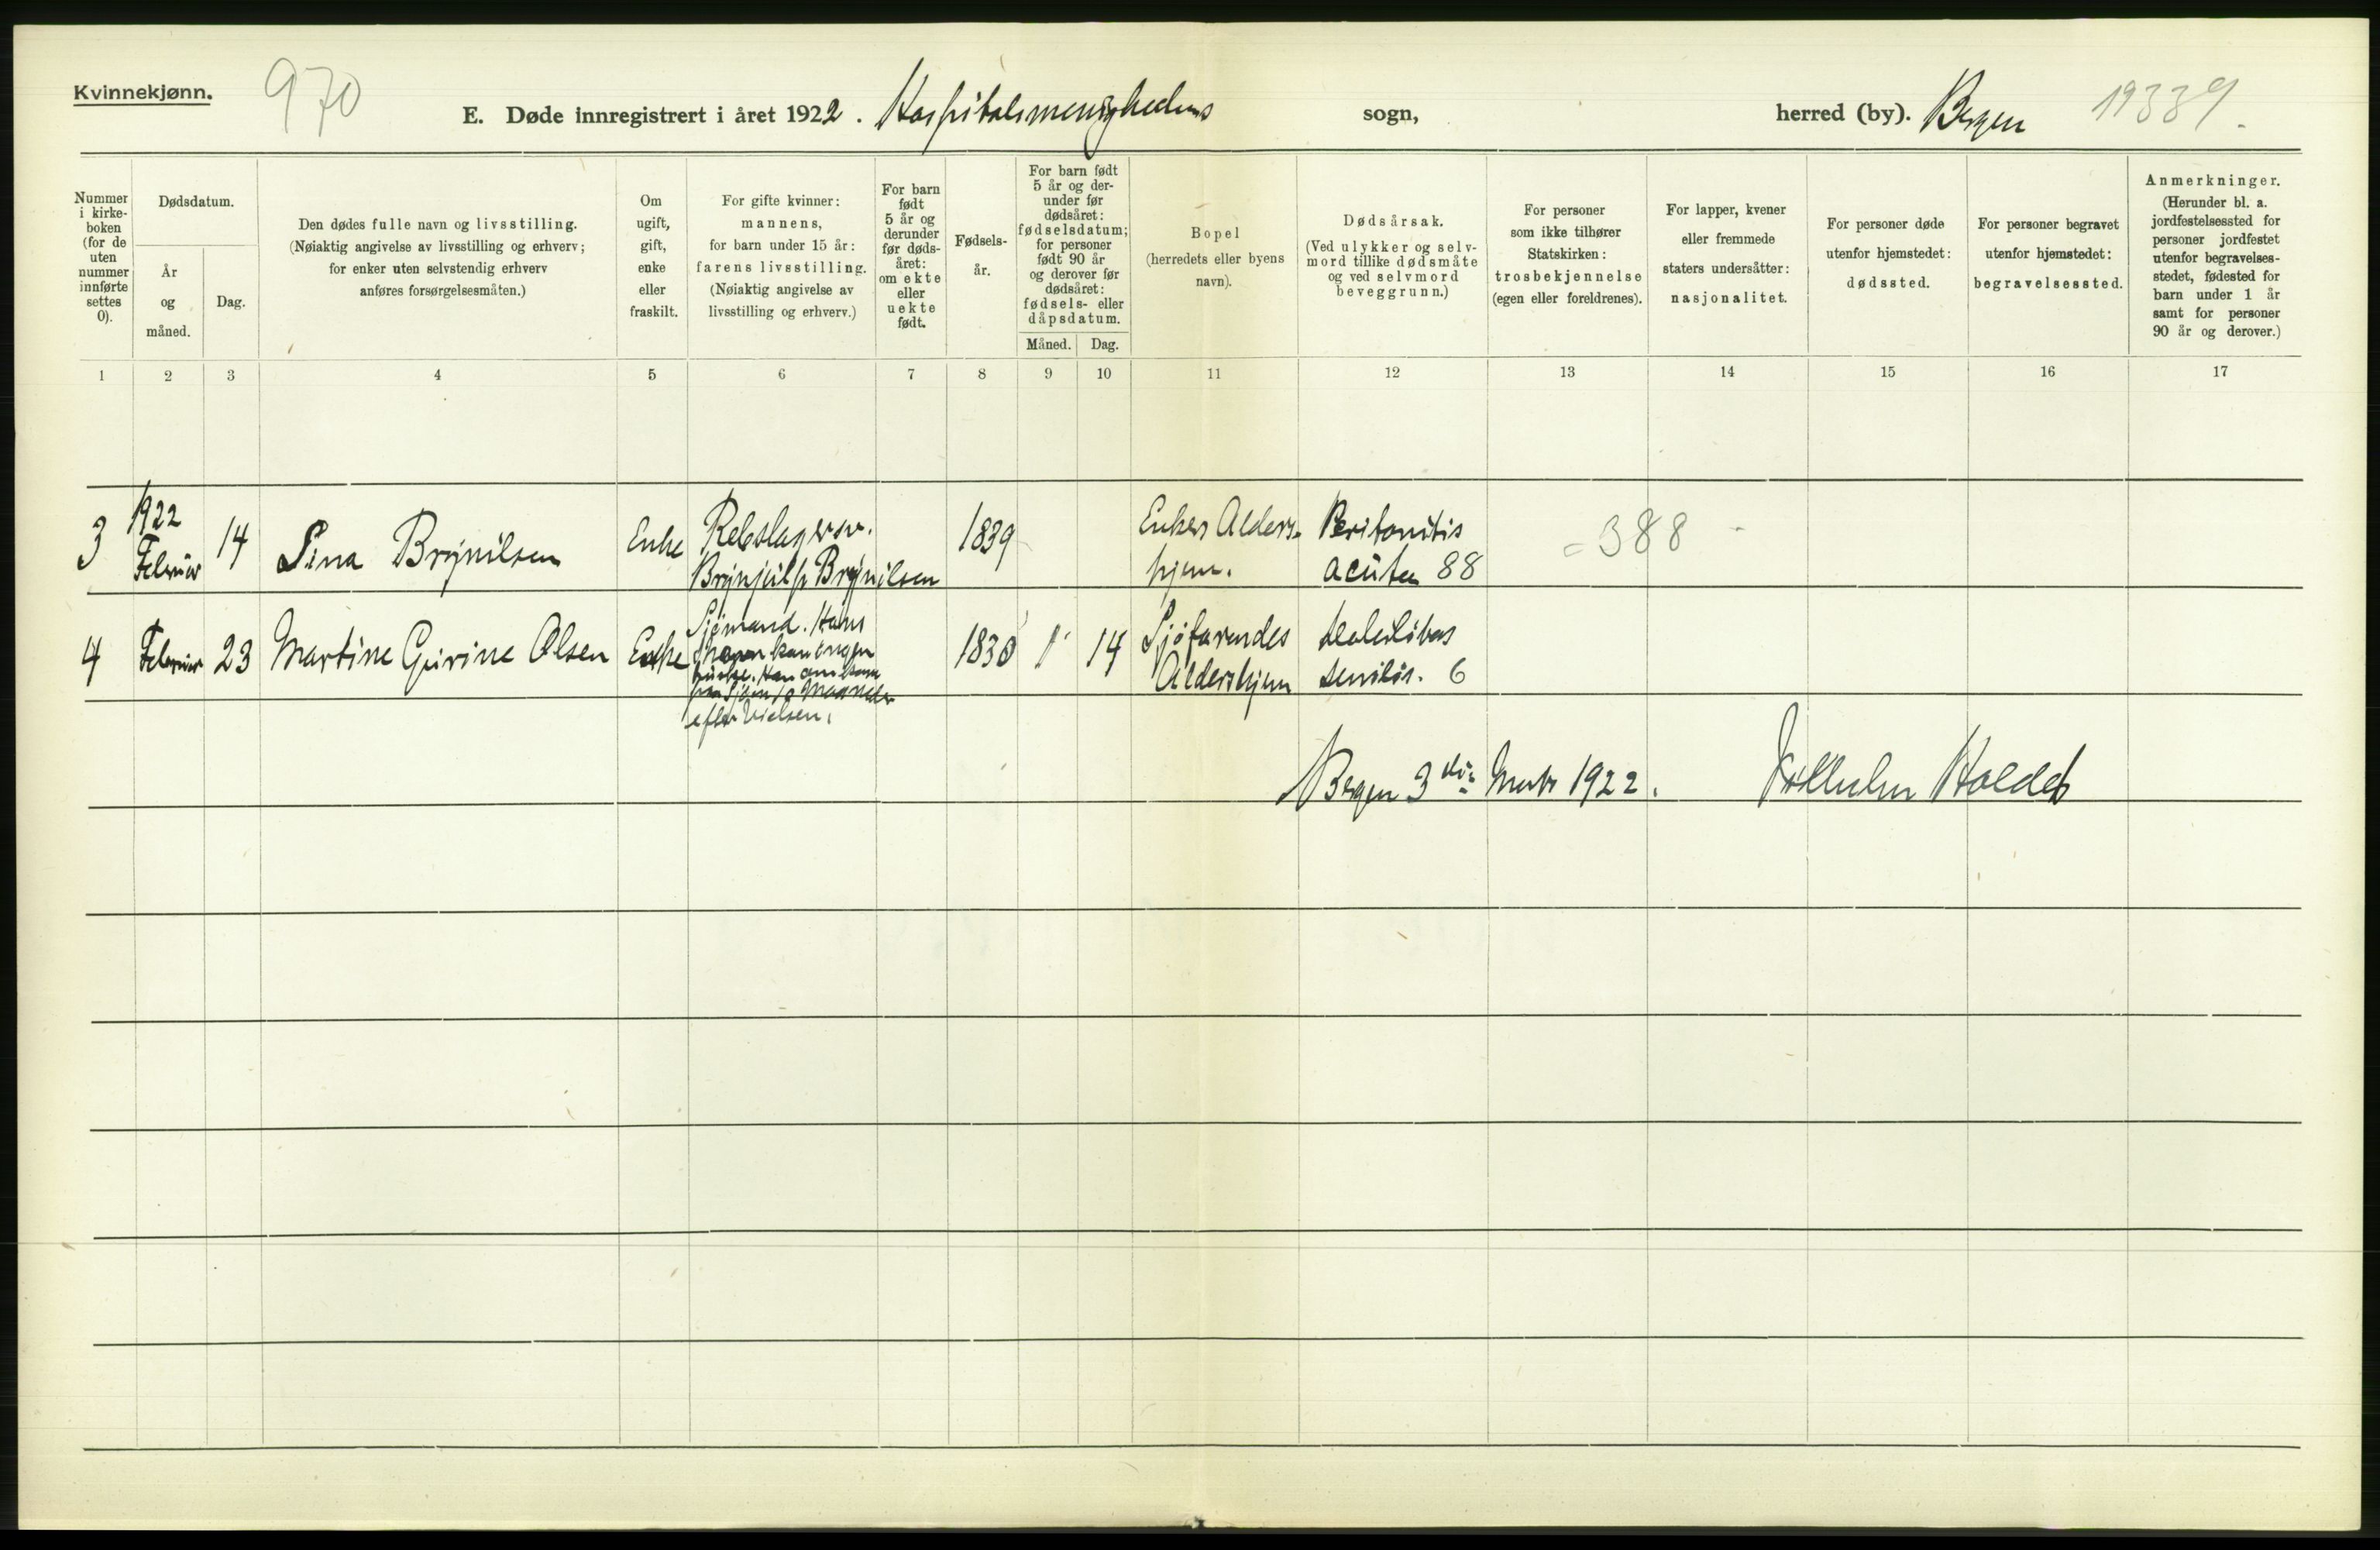 Kvinnekjønn.
970
E. Døde innregistrert i året 1922. Hospitalsmenighedens sogn, herred (by). Bergen
19339.
Nummer
i kirke-
boken
(for de
uten
nummer
innførte
settes
0).
Dødsdatum.
År
og
måned.
Dag.
Den dødes fulle navn og livsstilling.
(Nøiaktig angivelse av livsstilling og erhverv;
for enker uten selvstendig erhverv
anføres forsørgelsesmåten.)
Om
ugift,
gift,
enke
eller
fraskilt.
For gifte kvinner:
mannens,
for barn under 15 år:
farens livsstilling.
(Nøiaktig angivelse av
livsstilling og erhverv.)
For barn
født
5 år og
derunder
før døds-
året:
om ekte
eller
uekte
født.
Fødsels-
år.
For barn født
5 år og der-
under før
dødsåret:
fødselsdatum;
for personer
født 90 år
og derover før
dødsåret:
fødsels- eller
dåpsdatum.
Måned. Dag.
Bopel
(herredets eller byens
navn).
Dødsårsak.
(Ved ulykker og selv-
mord tillike dødsmåte
og ved selvmord
beveggrunn.)
For personer
som ikke tilhører
Statskirken:
trosbekjennelse
(egen eller foreldrenes).
For lapper, kvener
eller fremmede
staters undersåtter:
nasjonalitet.
For personer døde
utenfor hjemstedet:
dødssted.
For personer begravet
utenfor hjemstedet:
begravelsessted.
Anmerkninger.
(Herunder bl. a.
jordfestelsessted for
personer jordfestet
utenfor begravelses-
stedet, fødested for
barn under 1 år
samt for personer
90 år og derover.)
1 2 3 4 5 6 7 8 9 10 11 12 13 14 15 16 17
3
1922
Februar
14
Sina Brynilsen
Enke
Rebslagersv.
Brynjulf Brynilsen
1839
Enkers Alders-
hjem.
Peritonitis
acuta 88
= 388 -
4
Februar
23
Martine Gurine Olsen
Enke
Sjømand. Hans
navn kan ingen
huske. Han omkom
paa Sjøen 10 Maaneder
efter Vielsen.
1830
1
14
Sjøfarendes
Aldershjem
senilis. 6
Bergen 3die Marts 1922.
Wilhelm Holdt